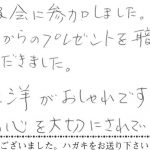 会に参加しました。
からのプレゼントを
だきました。
洋がおしゃれです
心を大切にされて
ございました。ハガキをお送り下さい